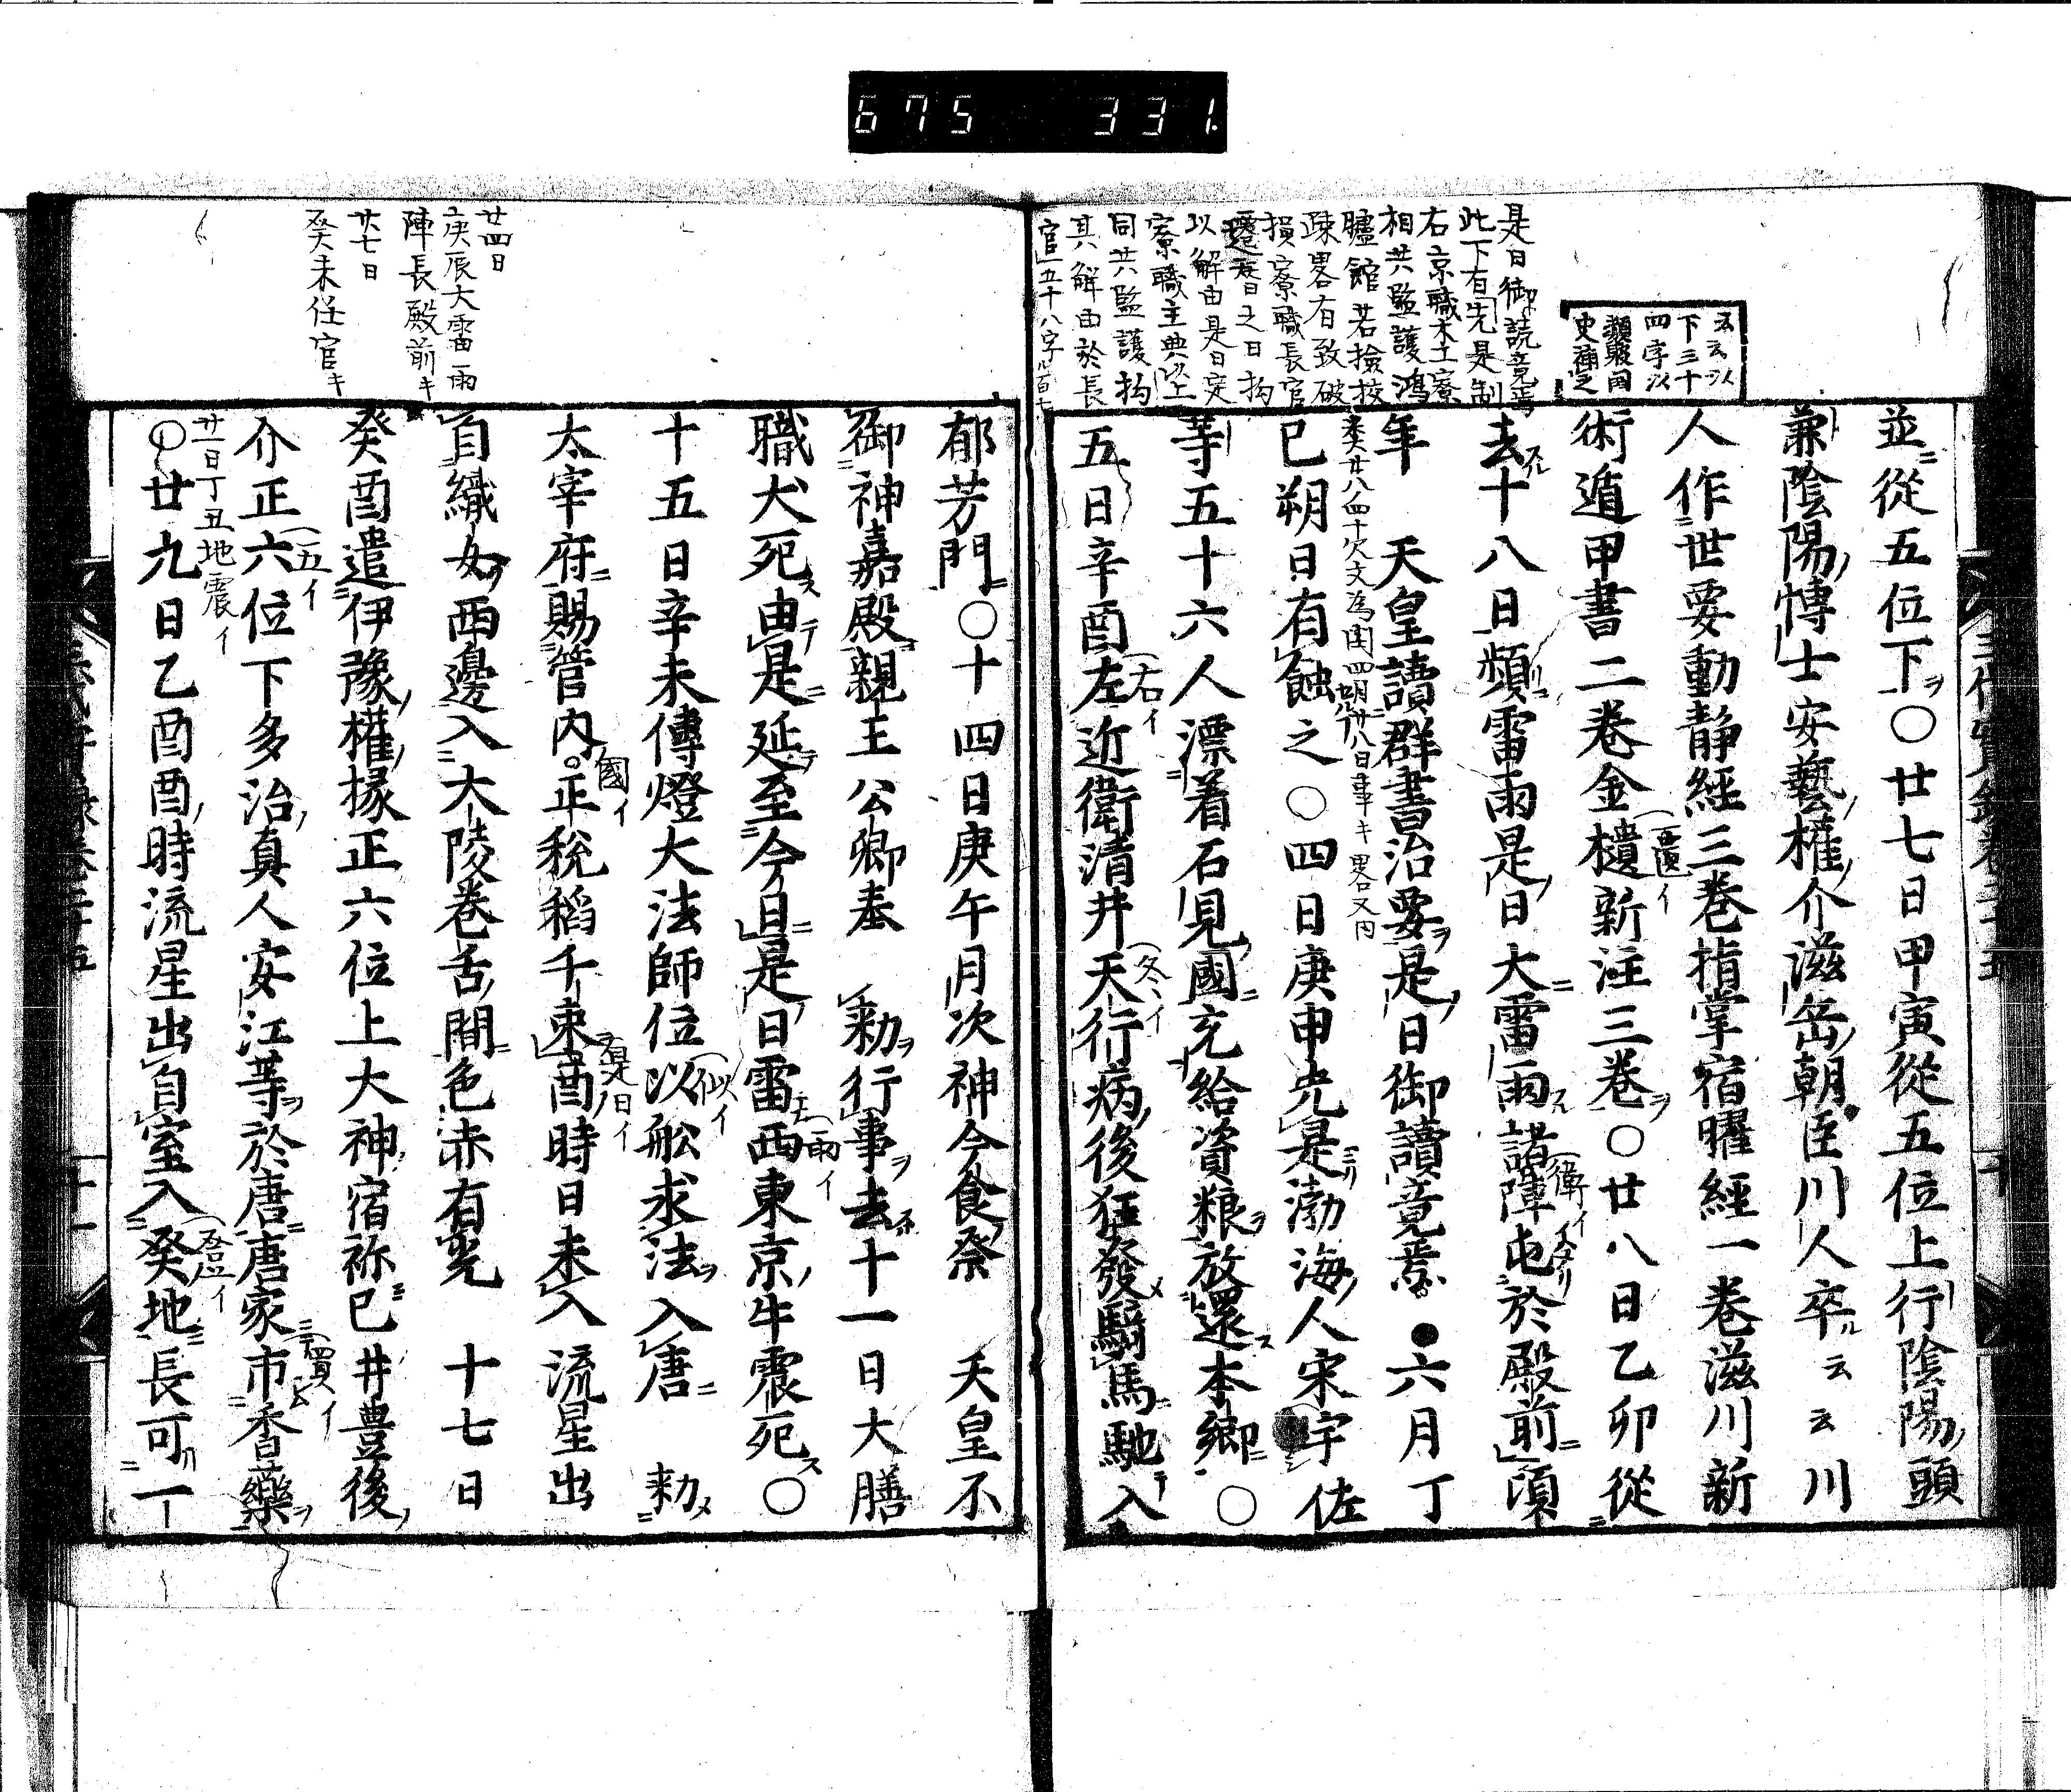 675 331.
云云以
下三十
四字以
類聚国
史補之
是日御読竟焉
此下有先是制
右京職木工寮
相共監護鴻
臚館若撿挍
疎畧有致破
損寮職長官
遷替之日拘
以解由是日定
寮職主典以上
同共監護拘
其解由於長
官五十八字
並從五位下〇廿七日甲寅從五位上行陰陽頭
兼陰陽博士安藝權介滋岳朝臣川人卒云云川
人作世要動静經三卷指掌宿曜經一卷滋川新
術遁甲書二卷金樻新注三卷〇廿八日乙卯從
去十八日頻雷雨是日大雷雨諸陣屯於殿前須
年 天皇讀群書治要是日御讀竟焉●六月丁
巳朔日有蝕之〇四日庚申先是渤海人宋宇佐
等五十六人漂着石見國充給資粮放還本鄉〇
五日辛酉左近衛清井天行病後狂發騎馬馳入
郁芳門〇十四日庚午月次神今食祭 天皇不
御神嘉殿親王公卿奉 勑行事去十一日大膳
職犬死由是延至今日是日雷西東京牛震死〇
十五日辛未傳燈大法師位以舩求法入唐 勑
太宰府賜管內正税稻千束酉時日未入流星出
自織女西邊入大陵卷舌間色赤有光 十七日
癸酉遣伊豫權掾正六位上大神宿祢已井豊後
介正六位下多治真人安江等於唐唐家市香藥
廿一日丁丑地震イ
〇廿九日乙酉酉時流星出自室入癸地長可一丁
廿四日
庚辰大雷雨
陣長殿前キ
廿七日
癸未任官キ